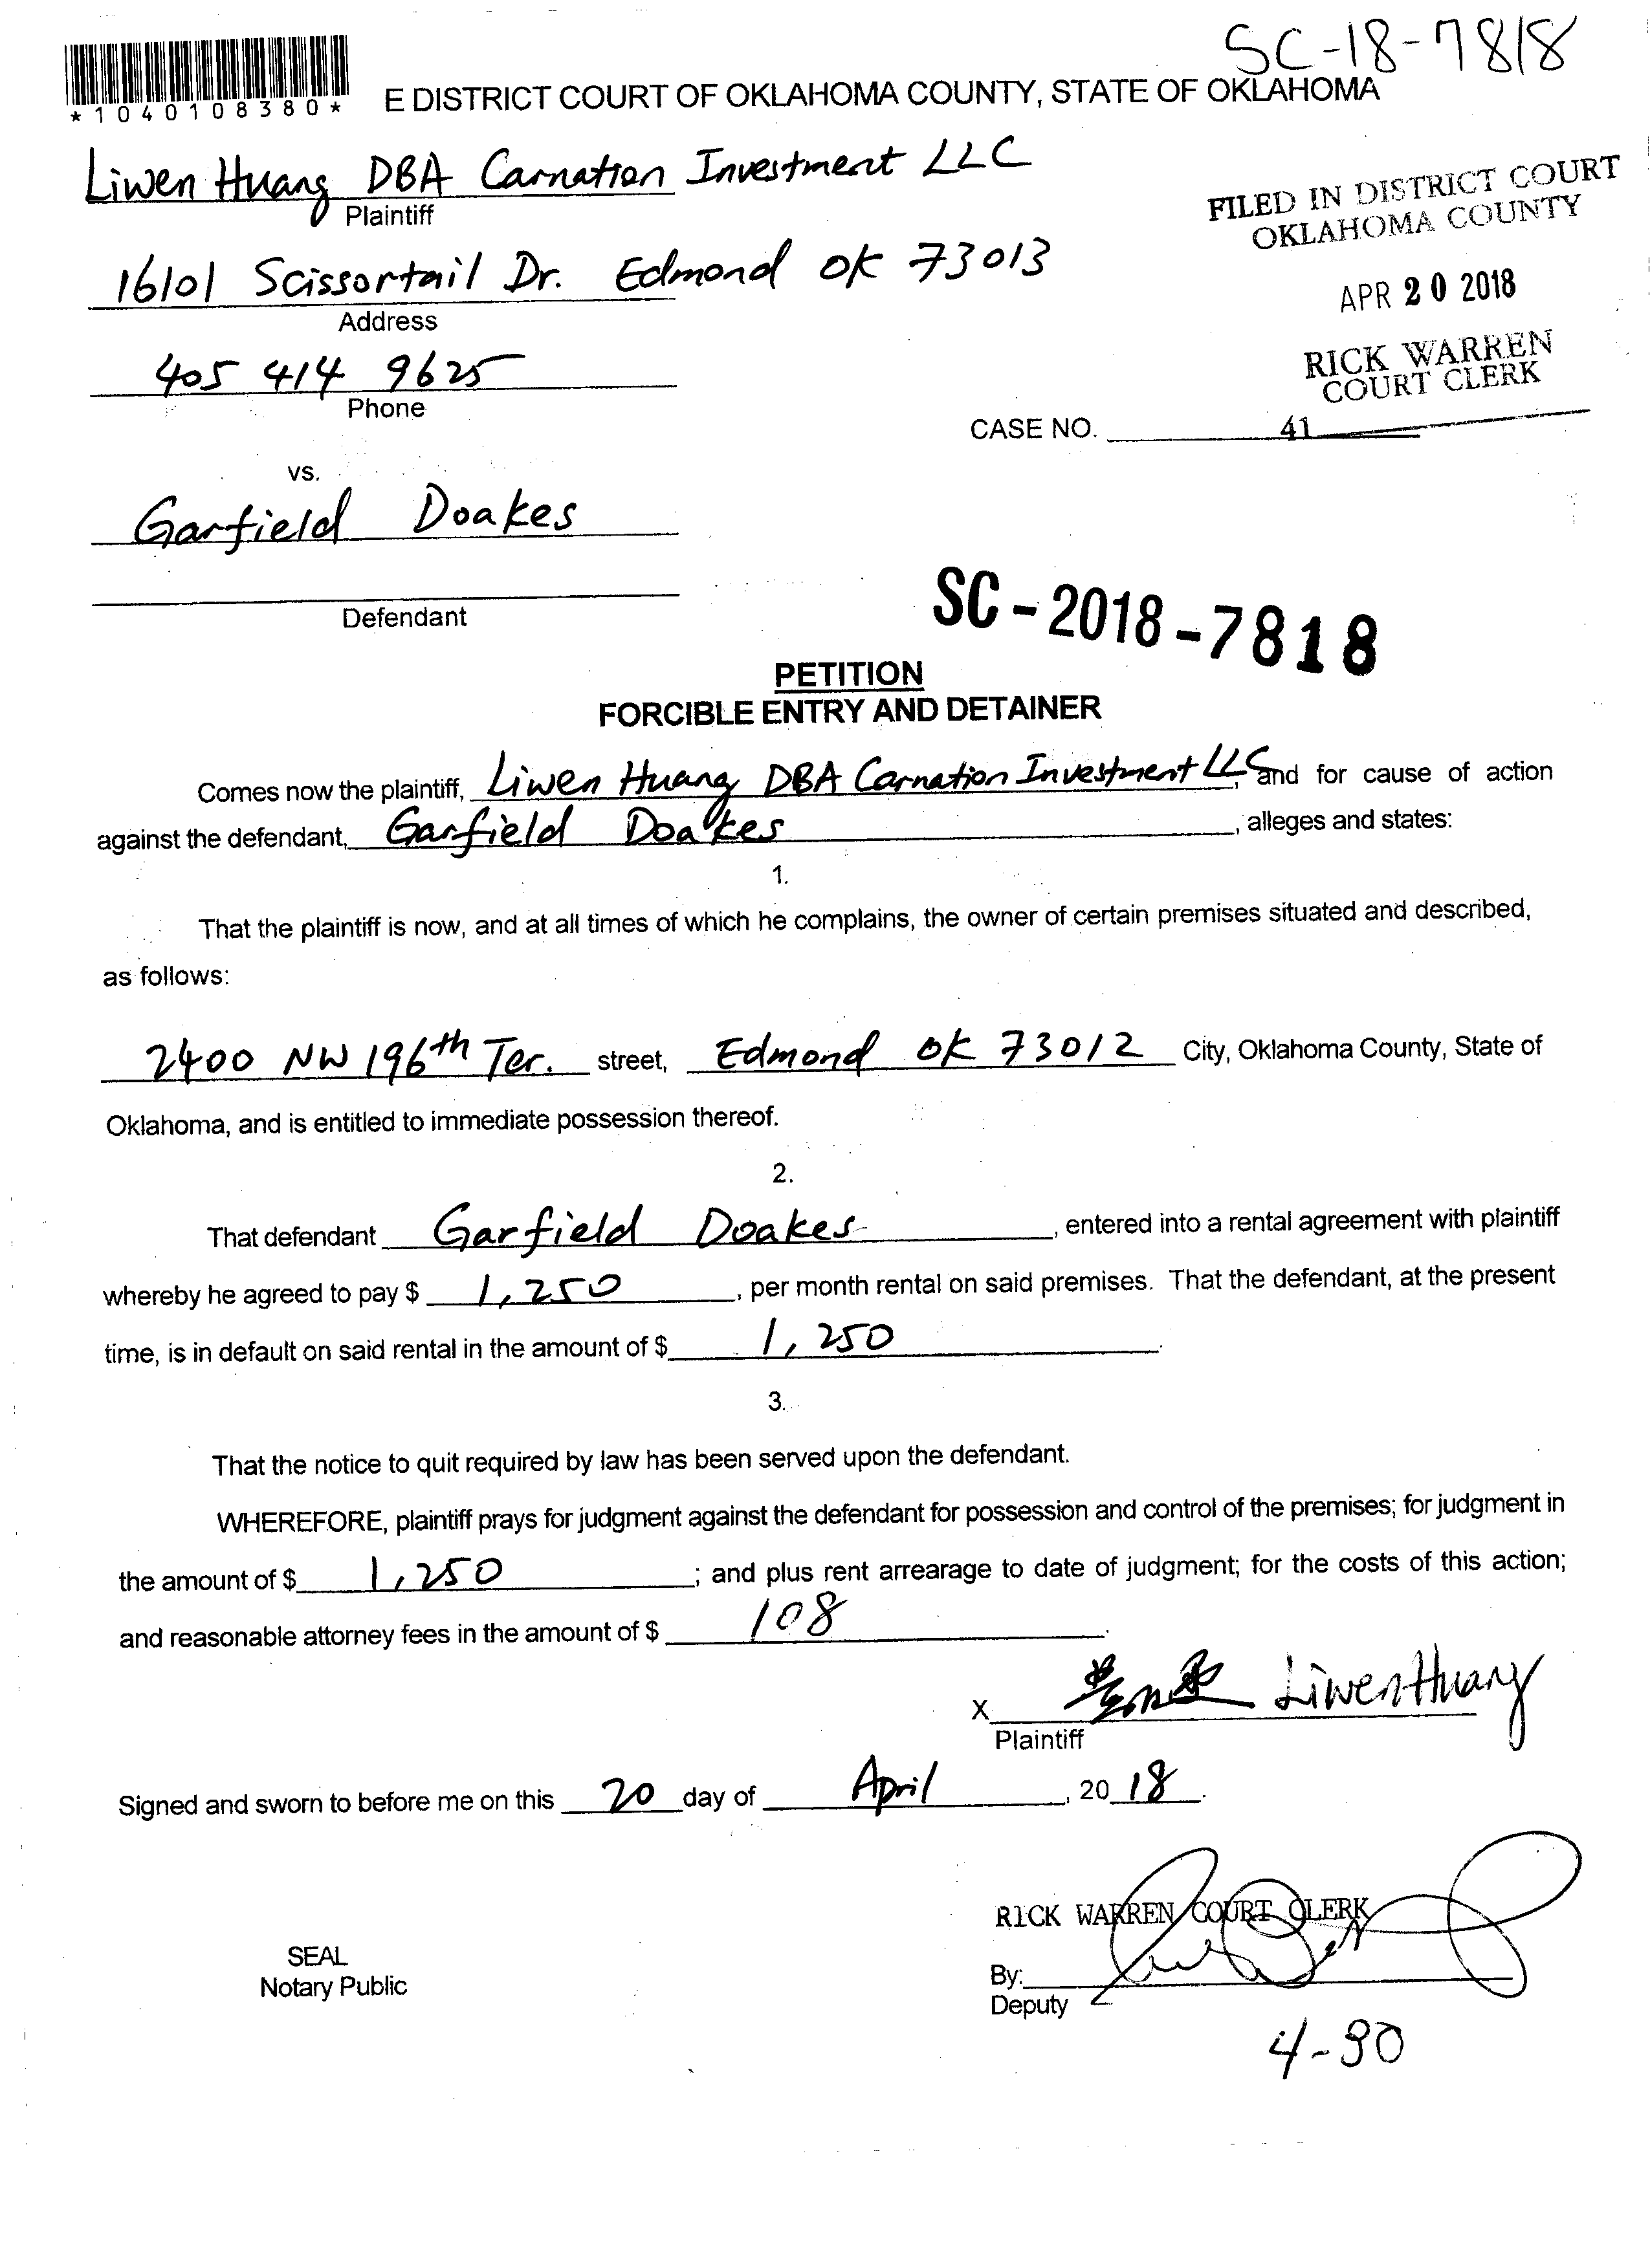 SC-18-7818
*1040108380*
E DISTRICT COURT OF OKLAHOMA COUNTY, STATE OF OKLAHOMA
Liwen Huang DBA Carnation Investment LLC
Plaintiff
FILED IN DISTRICT COURT
OKLAHOMA COUNTY
16101 Scissortail Dr. Edmond OK 73013
Address
APR 20 2018
405 414 9625
Phone
RICK WARREN
COURT CLERK
CASE NO. 41
vs.
Garfield Doakes
Defendant
SC-2018-7818
PETITION
FORCIBLE ENTRY AND DETAINER
Comes now the plaintiff, Liwen Huang DBA Carnation Investment LLC, and for cause of action
against the defendant, Garfield Doakes, alleges and states:
1.
That the plaintiff is now, and at all times of which he complains, the owner of certain premises situated and described,
as follows:
2400 NW 196th Ter. street, Edmond OK 73012 City, Oklahoma County, State of
Oklahoma, and is entitled to immediate possession thereof.
2.
That defendant Garfield Doakes, entered into a rental agreement with plaintiff
whereby he agreed to pay $ 1,250, per month rental on said premises. That the defendant, at the present
time, is in default on said rental in the amount of $ 1,250.
3.
That the notice to quit required by law has been served upon the defendant.
WHEREFORE, plaintiff prays for judgment against the defendant for possession and control of the premises; for judgment in
the amount of $ 1,250; and plus rent arrearage to date of judgment; for the costs of this action;
and reasonable attorney fees in the amount of $ 108.
X Liwen Huang
Plaintiff
Signed and sworn to before me on this 20 day of April, 20 18.
RICK WARREN COURT CLERK
SEAL
Notary Public
By:
Deputy
4-30